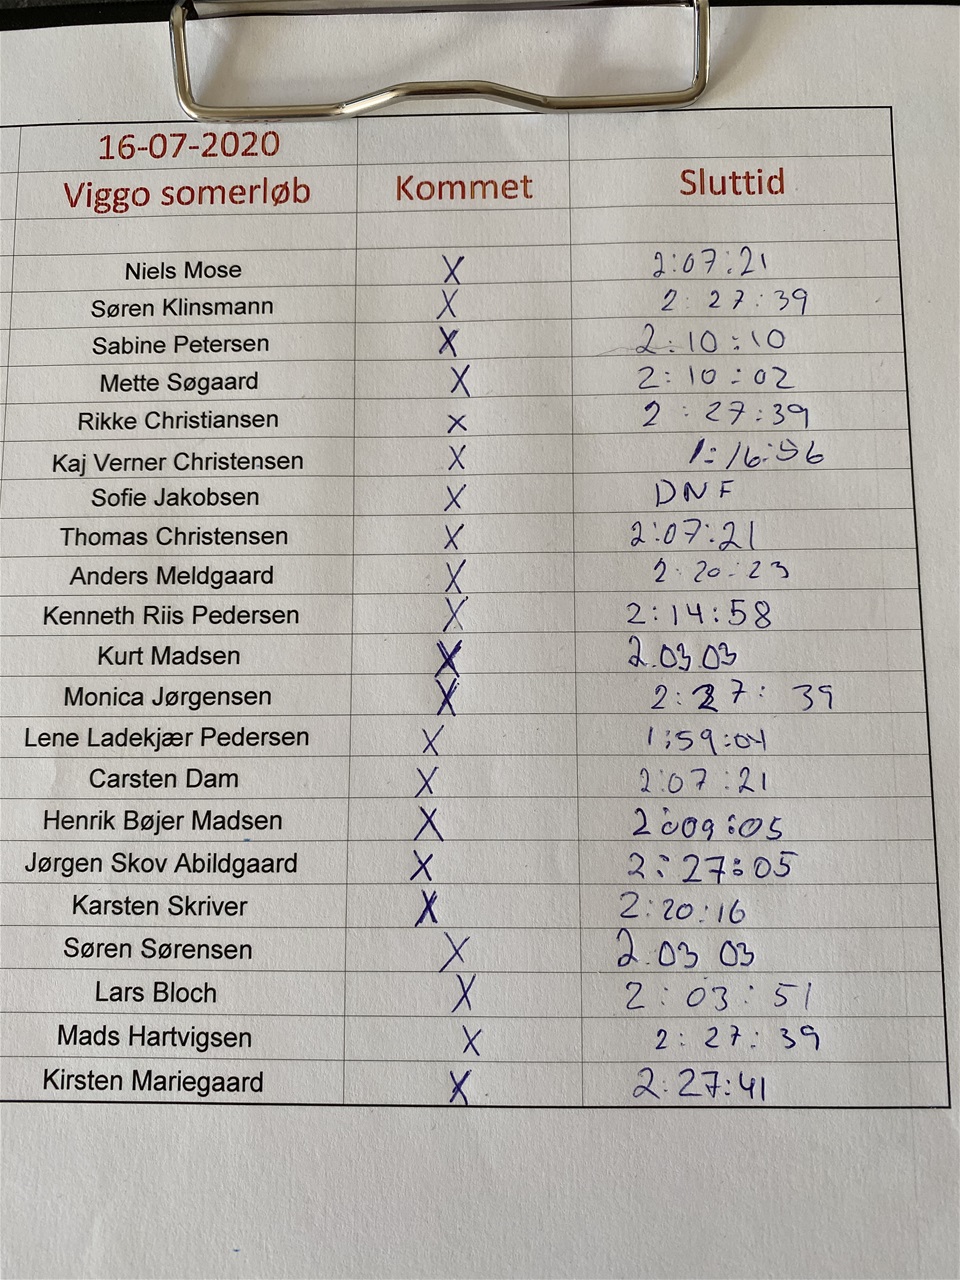 16-07-2020
Viggo somerløb Kommet Sluttid
Niels Mose X 2:07:21
Søren Klinsmann X 2:27:39
Sabine Petersen X 2:10:10
Mette Søgaard X 2:10:02
Rikke Christiansen X 2:27:39
Kaj Verner Christensen X 1:16:56
Sofie Jakobsen X DNF
Thomas Christensen X 2:07:21
Anders Meldgaard X 2:20:23
Kenneth Riis Pedersen X 2:14:58
Kurt Madsen X 2.03.03
Monica Jørgensen X 2:27:39
Lene Ladekjær Pedersen X 1:59:04
Carsten Dam X 2:07:21
Henrik Bøjer Madsen X 2:09:05
Jørgen Skov Abildgaard X 2:27:05
Karsten Skriver X 2:20:16
Søren Sørensen X 2.03 03
Lars Bloch X 2:03:51
Mads Hartvigsen X 2:27:39
Kirsten Mariegaard X 2:27:41